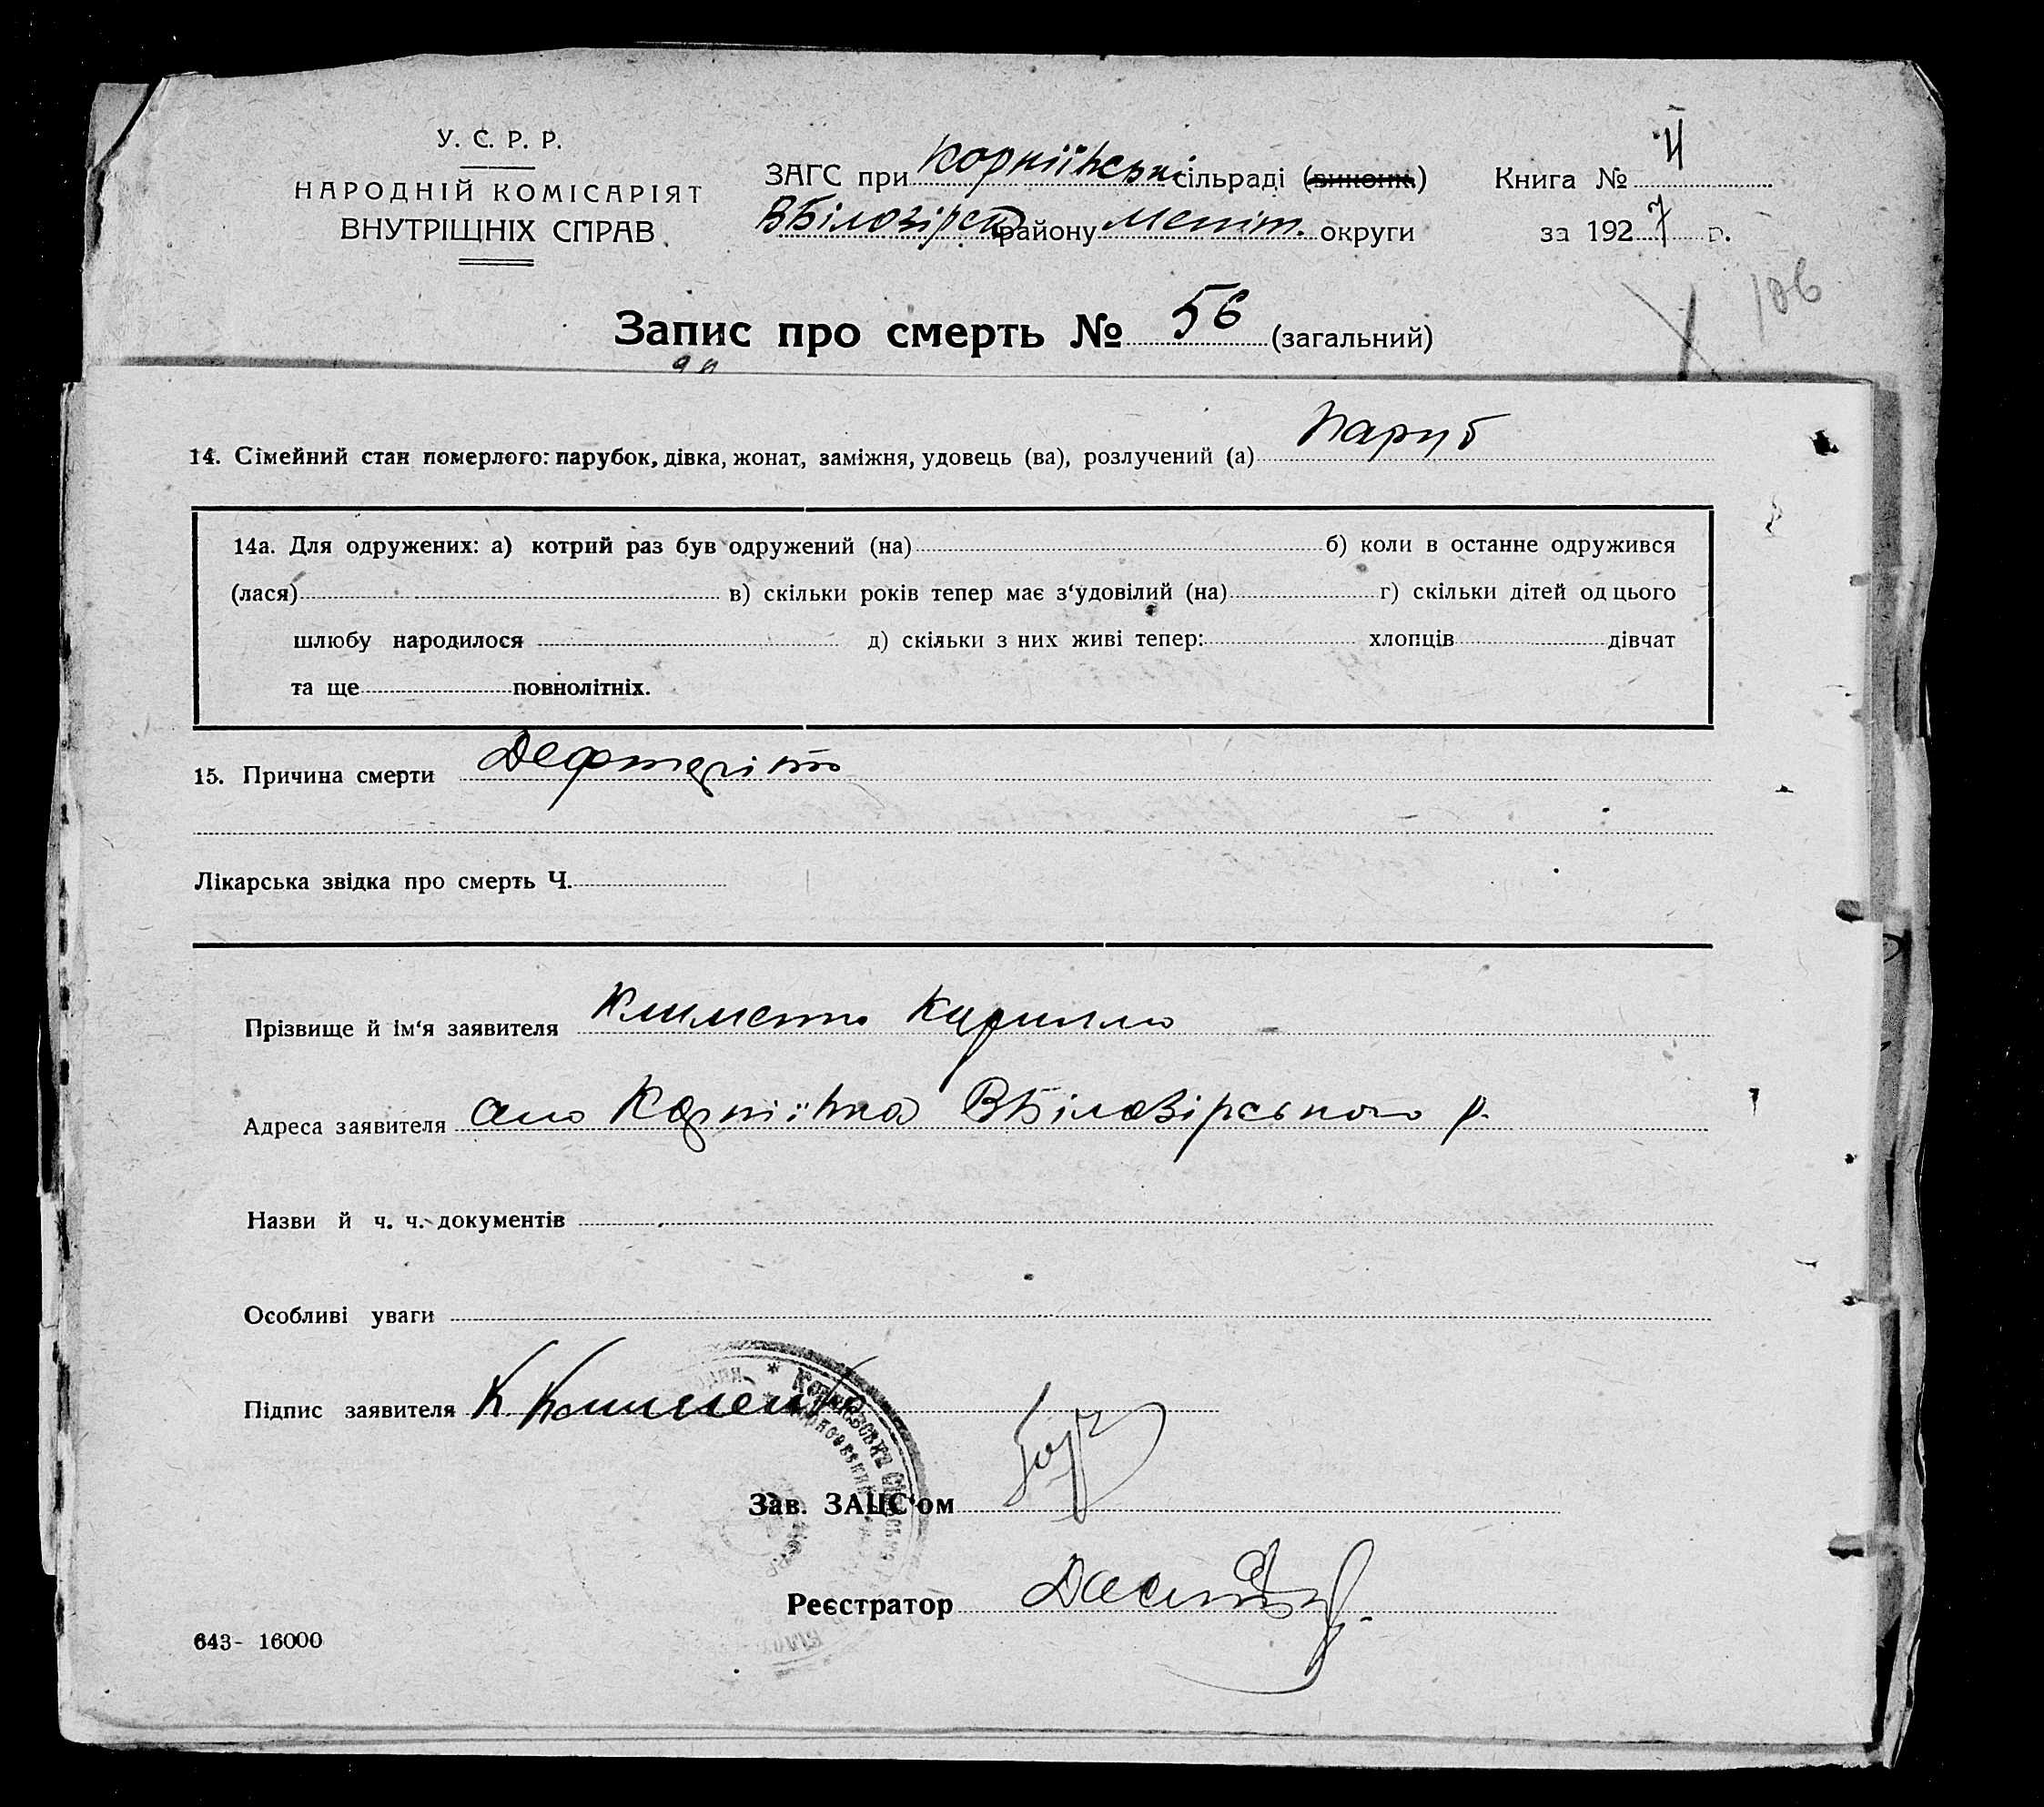 У. С. Р. Р.
НАРОДНІЙ КОМІСАРІЯТ
ВНУТРІШНІХ СПРАВ
ЗАГС при Корніївській сільраді (виконк.)
ВБілозірськ району Меліт. округи
Книга №
за 1927 р.
106
Запис про смерть № 56 (загальний)
14. Сімейний стан померлого: парубок, дівка, жонат, заміжня, удовець (ва), розлучений (а) Паруб
14а. Для одружених: а) котрий раз був одружений (на) б) коли в останне одружився
(лася) в) скільки років тепер має з‘удовілий (на) г) скільки дітей од цього
шлюбу народилося д) скільки з них живі тепер: хлопців дівчат
та ще повнолітніх.
15. Причина смерти Дефтеріт
Лікарська звідка про смерть Ч.
Прізвище й ім‘я заявителя Клименко Кирилло
Адреса заявителя село Корніївка ВБілозірського р.
Назви й ч. ч. документів
Особливі уваги
Підпис заявителя К Клименко
Зав. ЗАЦС‘ом
Реєстратор
643- 16000